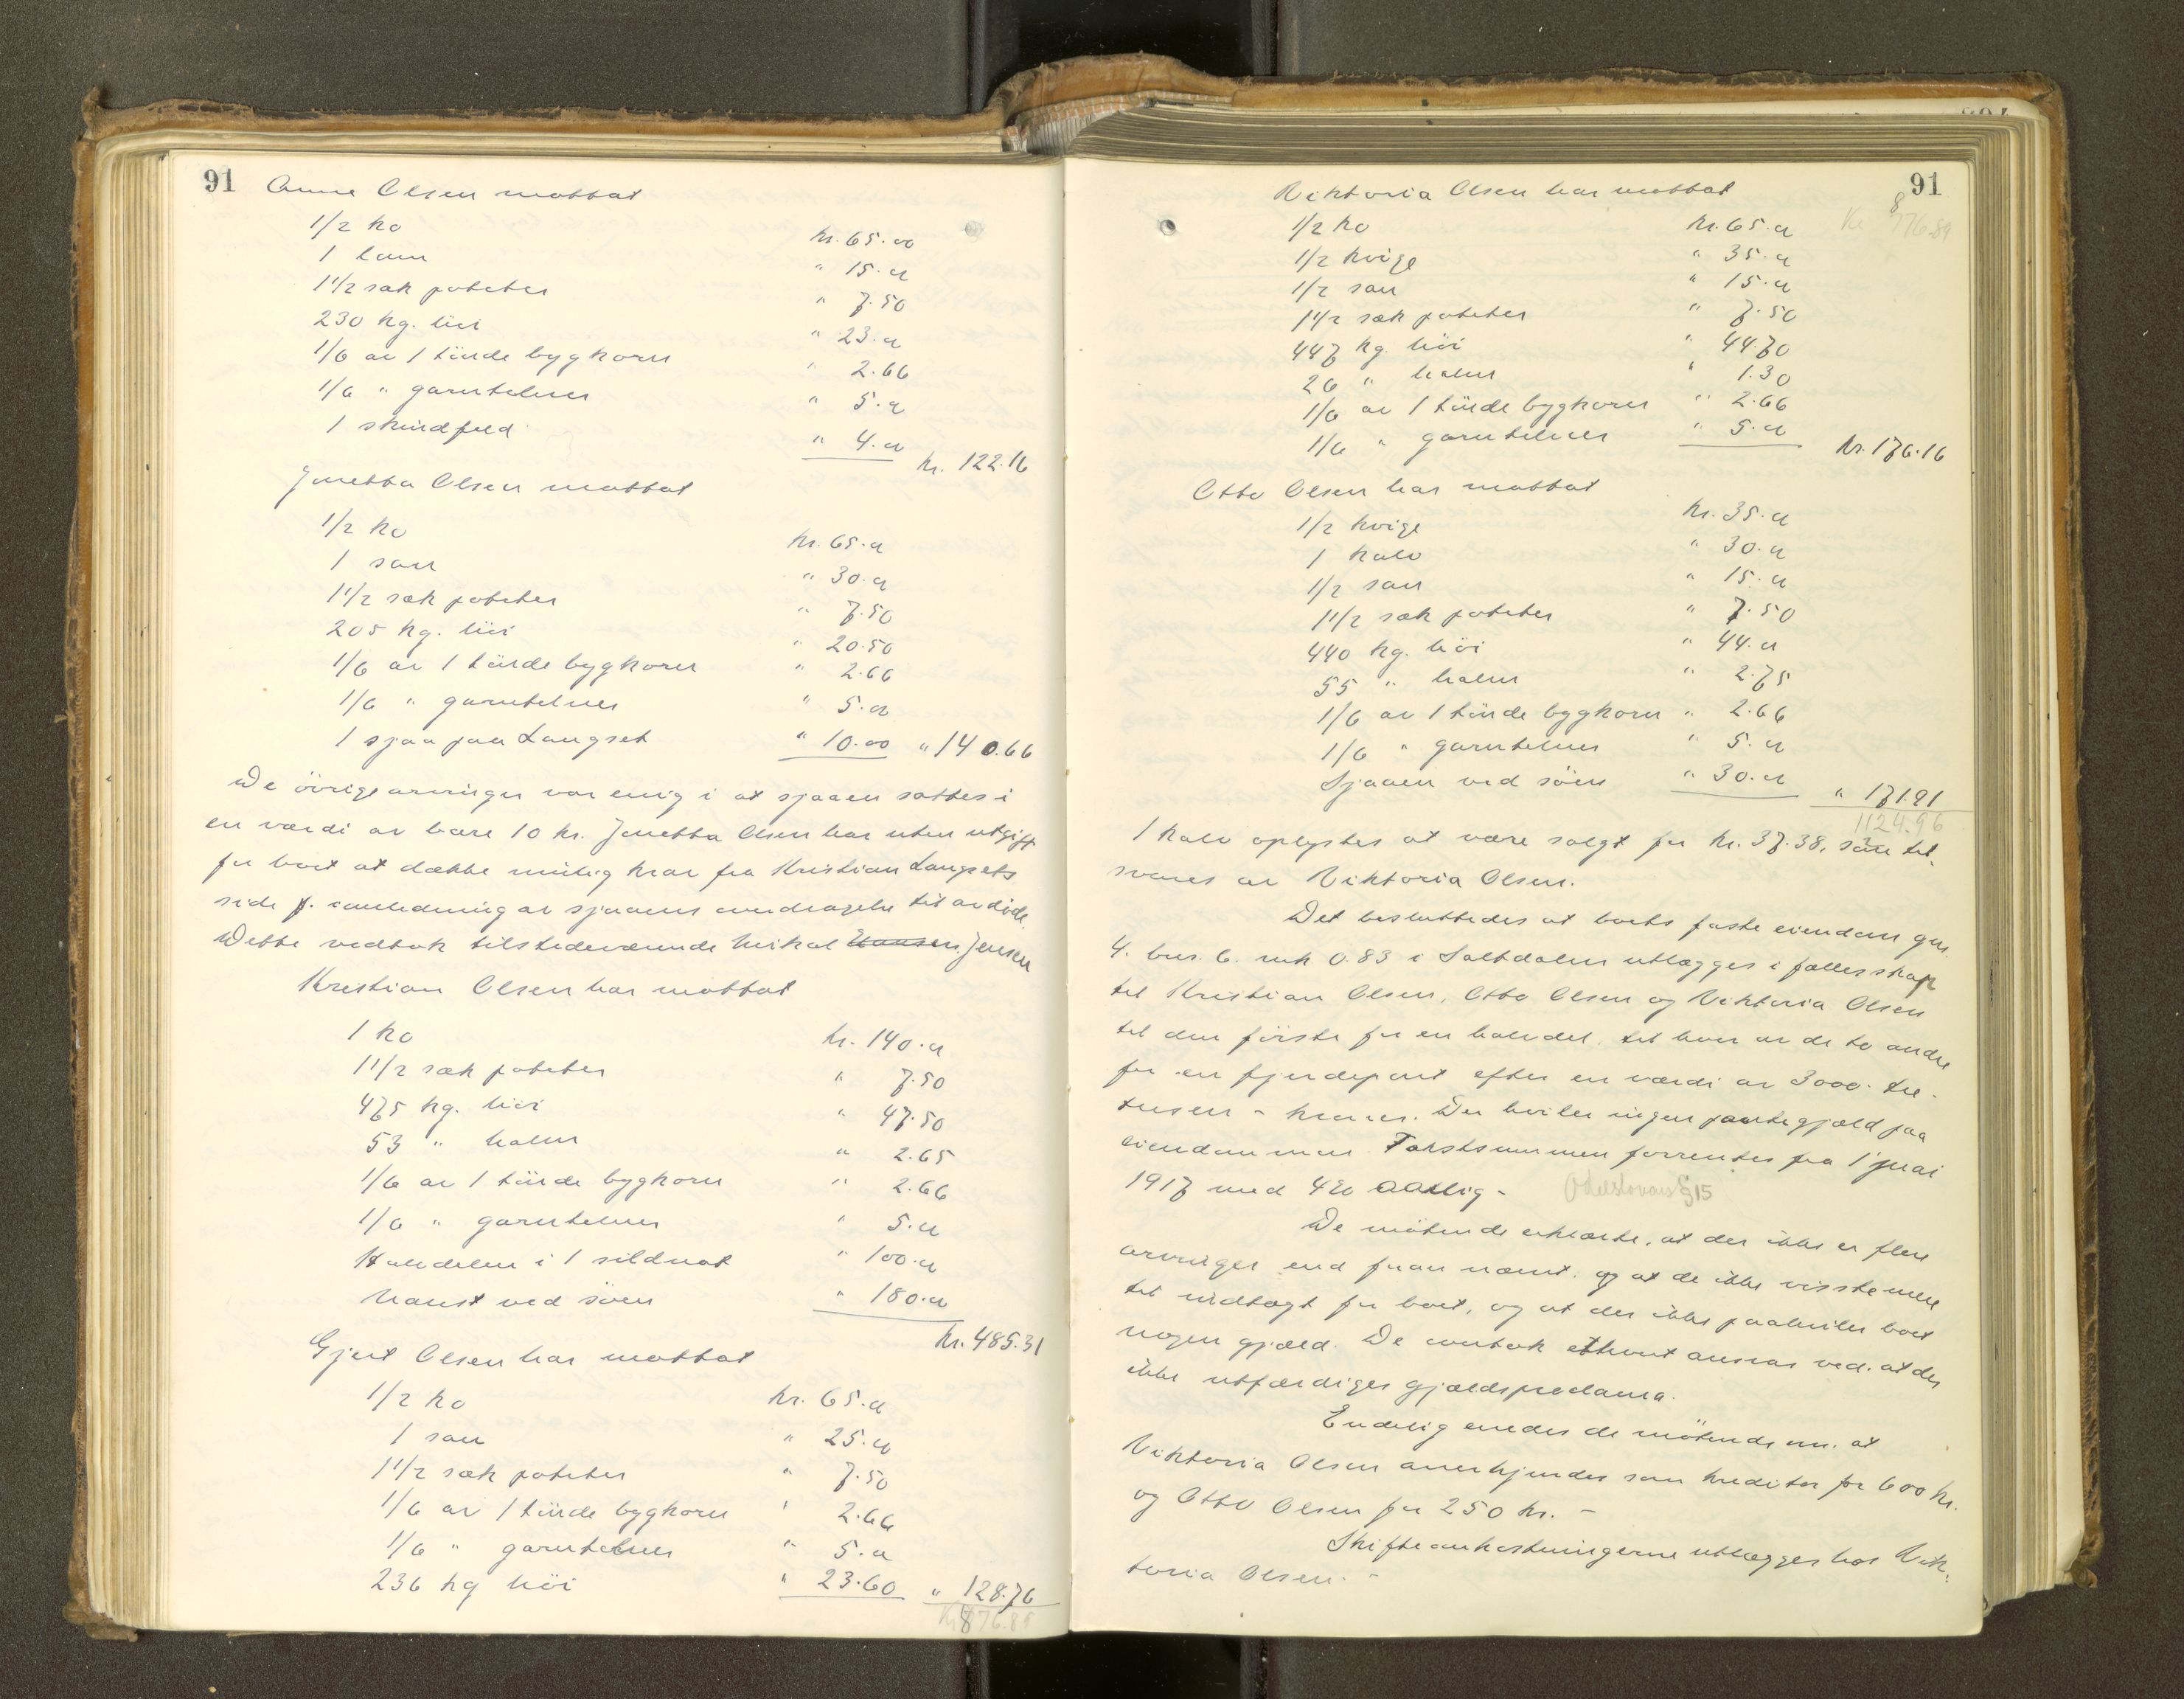 91 Anne Olsen mottat
1/2 ko kr. 65.00
1 lam " 15.a
1 1/2 sæk poteter " 7.50
230 kg. höi " 23.a
1/6 av 1 tönde bygkorn " 2.66
1/6 " garntelner " 5.a
1 skindfeld " 4.a kr. 122.16
Jenetta Olsen mottat
1/2 ko kr. 65.a
1 sau " 30.a
1 1/2 sæk poteter " 7.50
205 kg. höi " 20.50
1/6 av 1 tönde bygkorn " 2.66
1/6 " garntelner " 5.a
1 sjaa paa Langset " 10.00 " 140.66
De övrige arvinger var enig i at sjaaen sattes i
en værdi av bare 10 kr. Jenetta Olsen har uten utgift
for boet at dække mulig krav fra Kristian Langsets
side f. anledning av sjaaens avdragelse til avdöde.
Dette vedtok tilstedeværende Mikal Hansen Jensen
Kristian Olsen har mottat
1 ko kr. 140.a
1 1/2 sæk poteter " 7.50
475 kg. höi " 47.50
53 " halm " 2.65
1/6 av 1 tönde bygkorn " 2.66
1/6 " garntelner " 5.a
Halvdelen i 1 sildnot " 100.a
Naust ved söen " 180.a
kr. 485.31
Gjert Olsen har mottat
1/2 ko kr. 65.a
1 sau " 25.a
1 1/2 sæk poteter " 7.50
1/6 av 1 tönde bygkorn " 2.66
1/6 " garntelner " 5.a
236 kg höi " 23.60 " 128.76
Kr 876.89
91
Viktoria Olsen har mottat
Kr 876.89
1/2 ko kr. 65.a
1/2 kvige " 35.a
1/2 sau " 15.a
1 1/2 sæk poteter " 7.50
447 kg. höi " 44.70
26 " halm " 1.30
1/6 av 1 tönde bygkorn " 2.66
1/6 " garntelner " 5.a kr. 176.16
Otto Olsen har mottat
1/2 kvige kr. 35.a
1 kalv " 30.a
1/2 sau " 15.a
1 1/2 sæk poteter " 7.50
440 kg. höi " 44.a
55 " halm " 2.75
1/6 av 1 tönde bygkorn " 2.66
1/6 " garntelner " 5.a
Sjaaen ved söen " 30.a " 171.91
1124.96
1 kalv oplystes at være solgt for kr. 37.38, som til-
svares av Viktoria Olsen.
Det besluttedes at boets faste eiendom gnr.
4. bnr. 6. mk 0.83 i Saltdalen utlægges i fællesskap
til Kristian Olsen, Otto Olsen og Viktoria Olsen
til den förste for en halvdel, til hver av de to andre
for en fjerdepart efter en værdi av 3000. tre-
tusen - kroner. Der hviler ingen pantegjæld paa
eiendommen Takstsummen forrentes fra 1 mai
1917 med 4% aarlig - Odelslovens § 15
De mötende erklærte, at der ikke er flere
arvinger end foran nævnt, og at de ikke visste mere
til indtægt for boet, og at der ikke paahviler boet
nogen gjæld. De overtok ethvert ansvar ved, at der
ikke utfærdiges gjældsproclama.
Endelig enedes de mötende om, at
Viktoria Olsen anerkjendes som kreditor for 600 kr.
og Otto Olsen for 250 kr. -
Skifteomkostningerne utlægges hos Vik-
toria Olsen. -